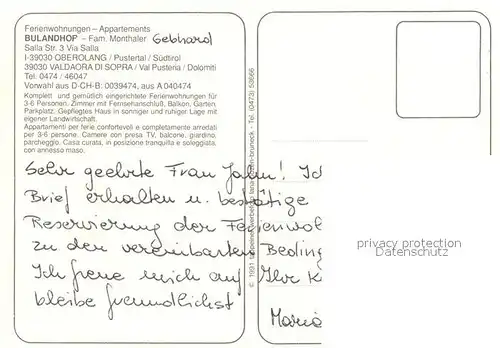 Ferienwohnungen – Appartements
BULANDHOF – Fam. Monthaler Gebhard
Salla Str. 3 Via Salla
I-39030 OBEROLANG / Pustertal / Südtirol
39030 VALDAORA DI SOPRA / Val Pusteria / Dolomiti
Tel. 0474 / 46047
Vorwahl aus D-CH-B: 0039474, aus A 040474
Komplett und gemütlich eingerichtete Ferienwohnungen für
3-6 Personen. Zimmer mit Fernsehanschluß, Balkon, Garten,
Parkplatz. Gepflegtes Haus in sonniger und ruhiger Lage mit
eigener Landwirtschaft.
Appartamenti per ferie confortevoli e completamente arredati
per 3-6 persone. Camere con presa TV, balcone, giardino,
parcheggio. Casa curata, in posizione tranquilla e soleggiata,
con annesso maso.
Sehr geehrte Frau Jahn! Ich
Brief erhalten u. bestätige
Reservierung der Ferienwoh
zu den vereinbarten Beding
Ich freue mich auf Ihr K
bleibe freundlichst
Maria
© 1991 - Tel. (0473) 53666
privacy protection
Datenschutz